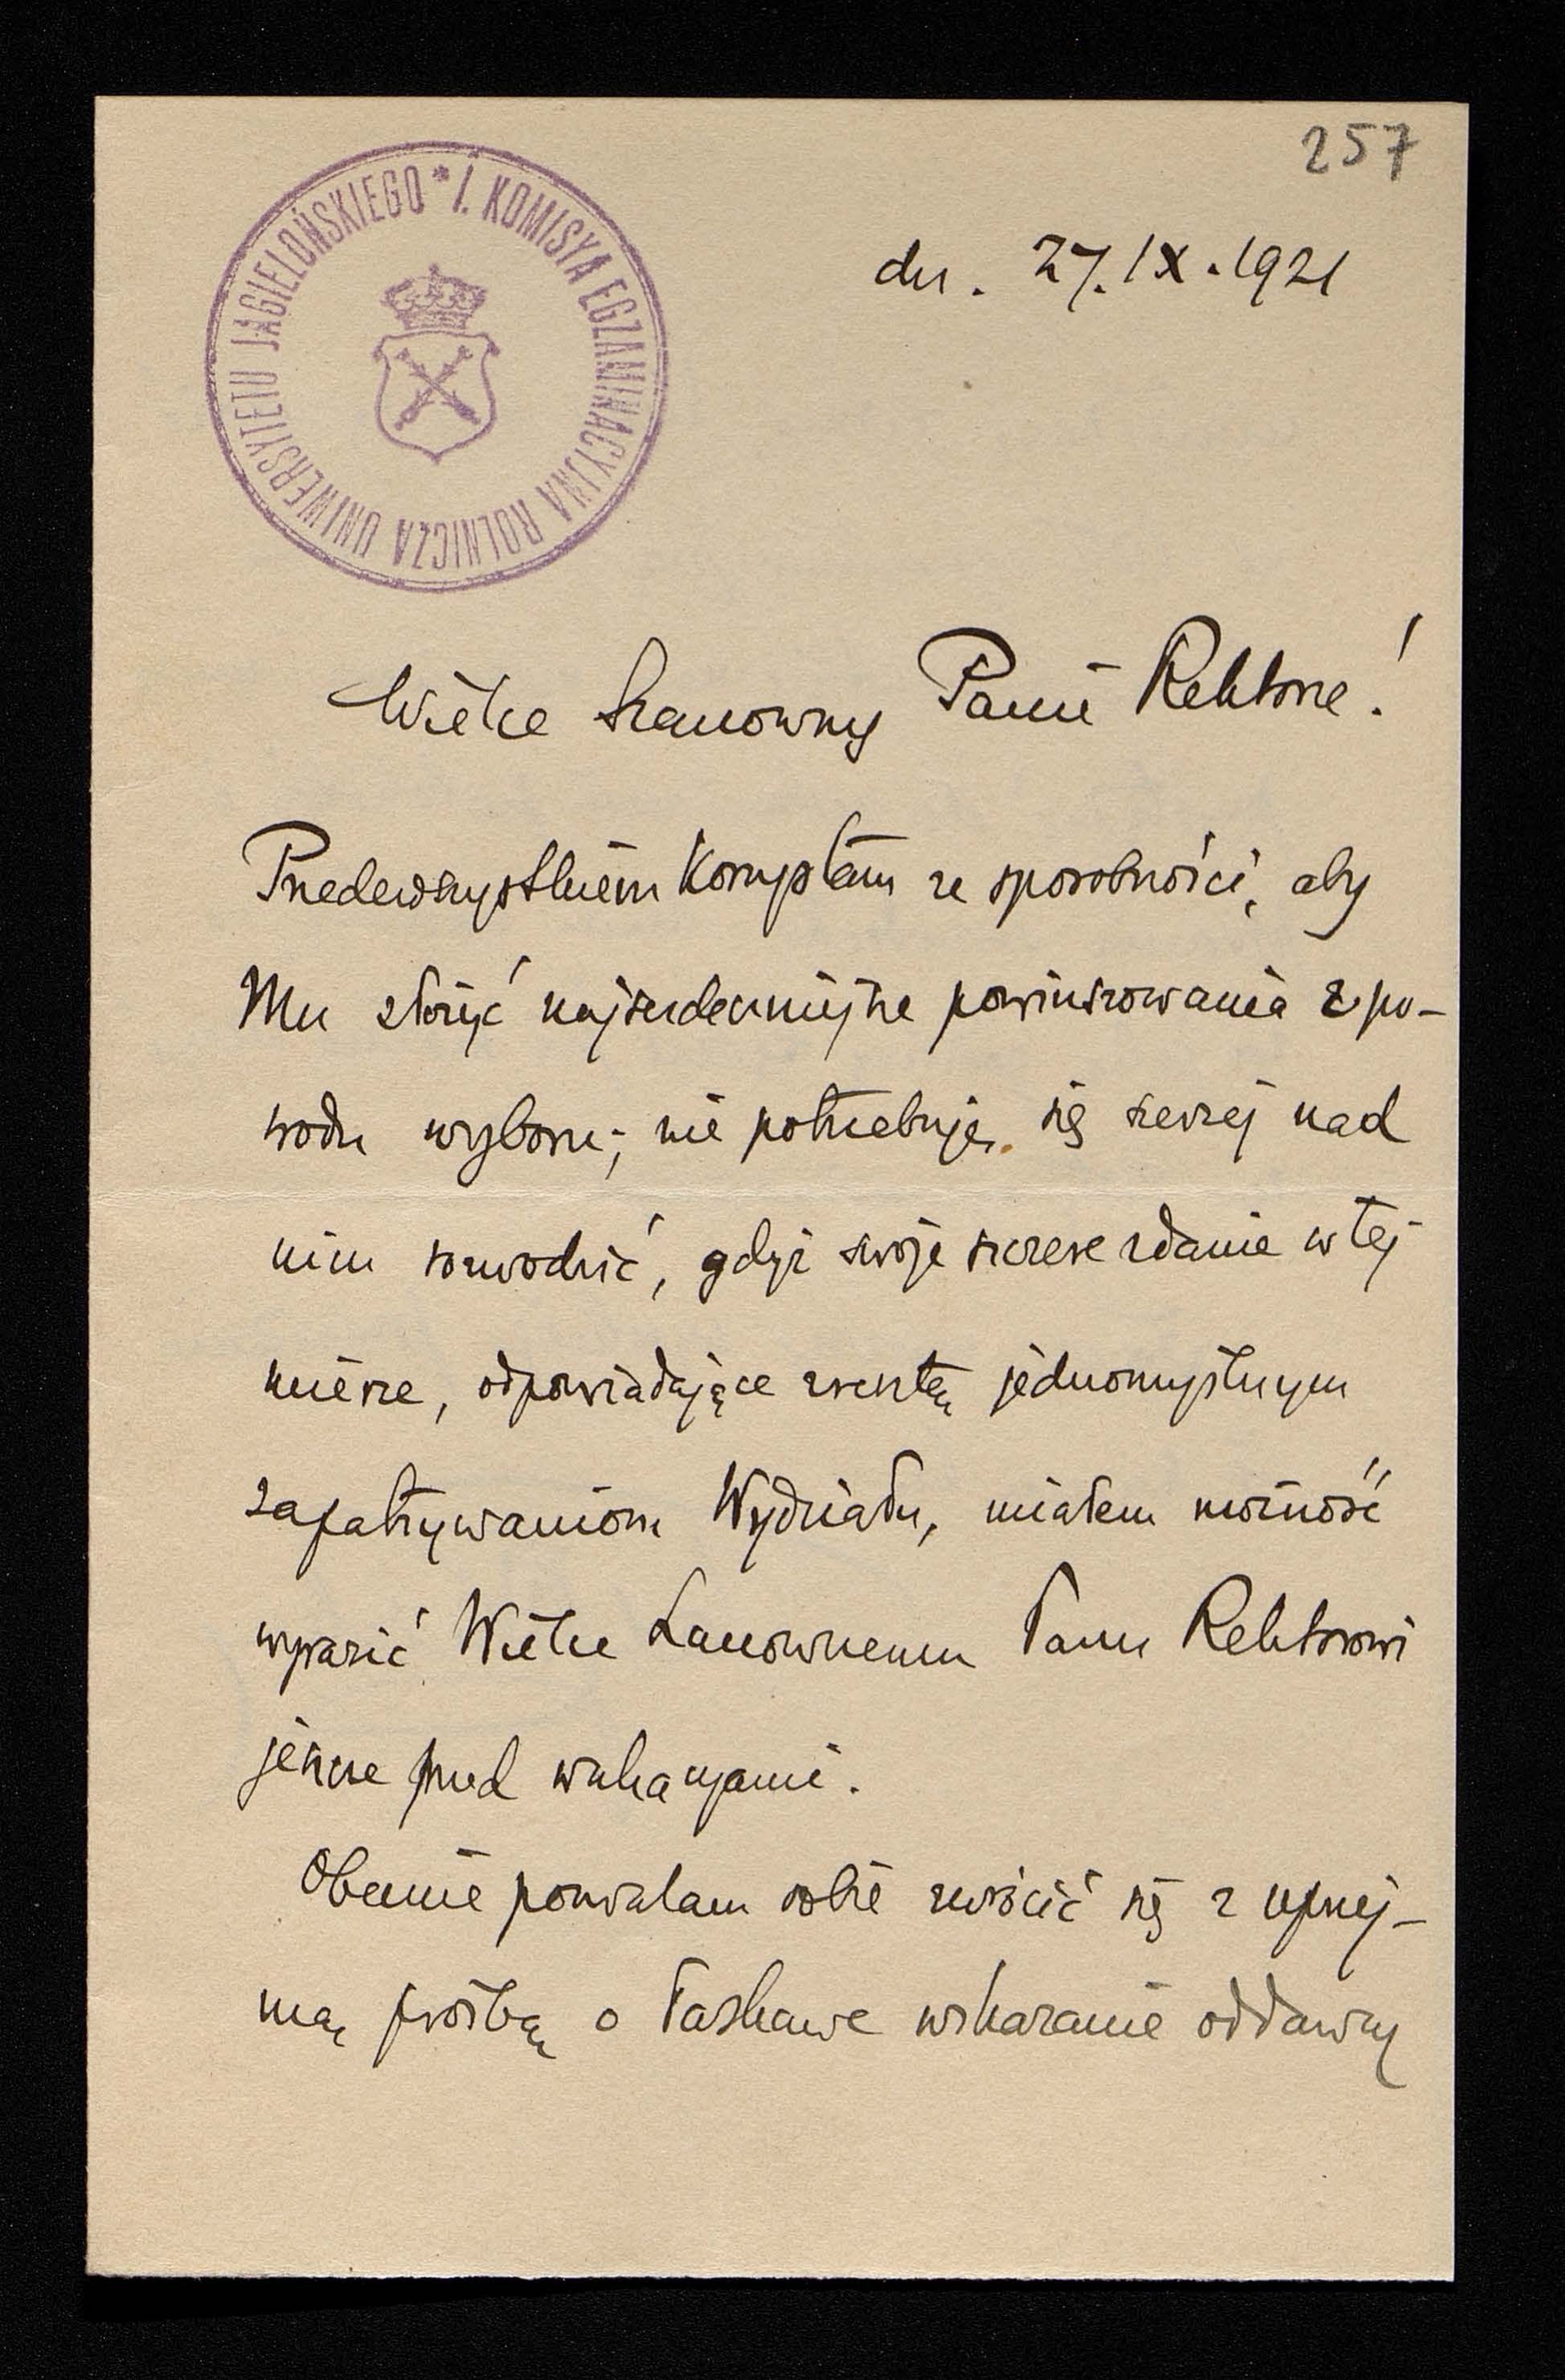 257
I. KOMISYA EGZAMINACYJNA ROLNICZA UNIWERSYTETU JAGIELOŃSKIEGO *
dn. 27.IX.1921
Wielce Szanowny Panie Rektorze!
Przedewszystkiem korzystam ze sposobności, aby
Mu złożyć najserdeczniejsze powinszowania z po-
wodu wyboru; nie potrzebuję się szerzej nad
nim rozwodzić, gdyż swoje szczere zdanie w tej
mierze, odpowiadające zresztą jednomyślnym
zapatrywaniom Wydziału, miałem możność
wyrazić Wielce Szanownemu Panu Rektorowi
jeszcze przed wakacyami.
Obecnie pozwalam sobie zwrócić się z uprzej-
mą prośbą o łaskawe wskazanie oddawcy